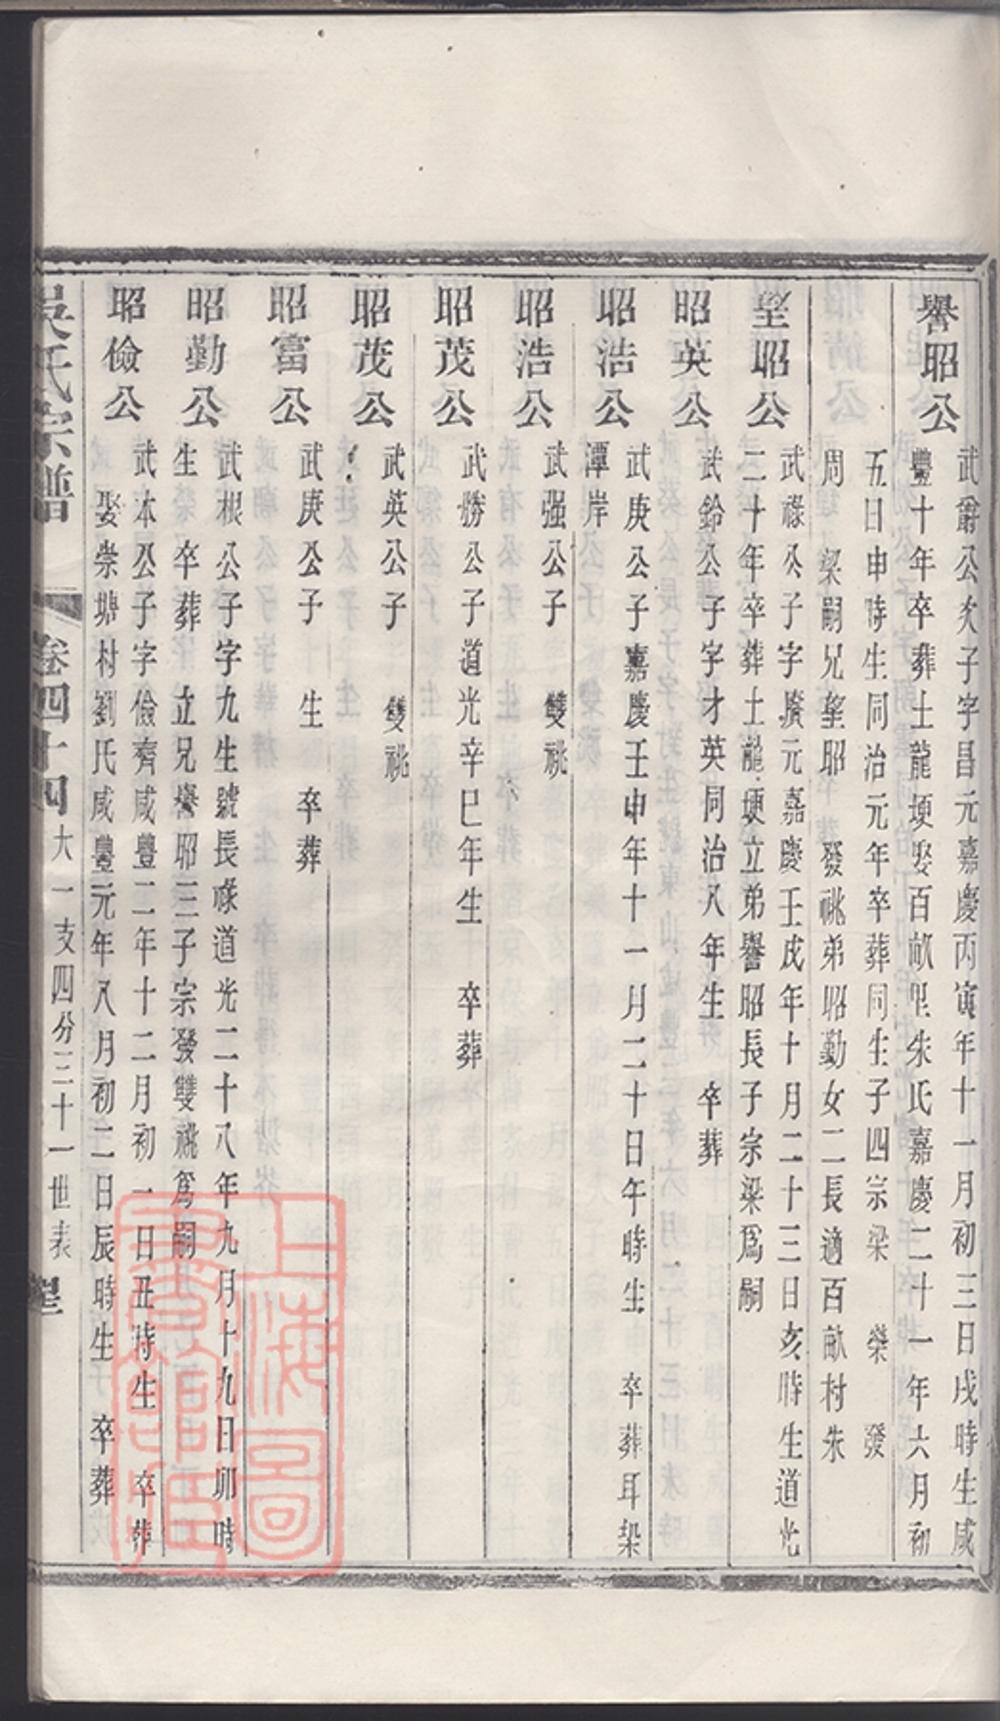 譽昭公
武爵公次子字昌元嘉慶丙寅年十一月初三日戌時生咸
豐十年卒葬土龍埂娶百畝里朱氏嘉慶二十一年六月初
五日申時生同治元年卒葬同生子四宗梁 榮 發
周 梁嗣兄望昭 發祧弟昭勤女二長適百畝村朱
望昭公
武祿公子字 元嘉慶壬戌年十月二十三日亥時生道光
二十年卒葬土龍埂立弟譽昭長子宗梁爲嗣
昭英公
武鈴公子字才英同治八年生 卒葬
昭浩公
武庚公子嘉慶壬申年十一月二十日午時生 卒葬耳染
潭岸
昭浩公
武强公子 雙祧
昭茂公
武勝公子道光辛巳年生 卒葬
昭茂公
武英公子 雙祧
昭富公
武庚公子 生 卒葬
昭勤公
武根公子字九生號長祿道光二十八年九月十九日卯時
生 卒葬 立兄譽昭三子宗發雙祧爲嗣
昭儉公
武本公子字儉齊咸豐二年十二月初一日丑時生 卒葬
娶崇塘村劉氏咸豐元年八月初二日辰時生 卒葬
吳氏宗譜 卷四十四 大一支四分三十一世表
上海圖書館藏